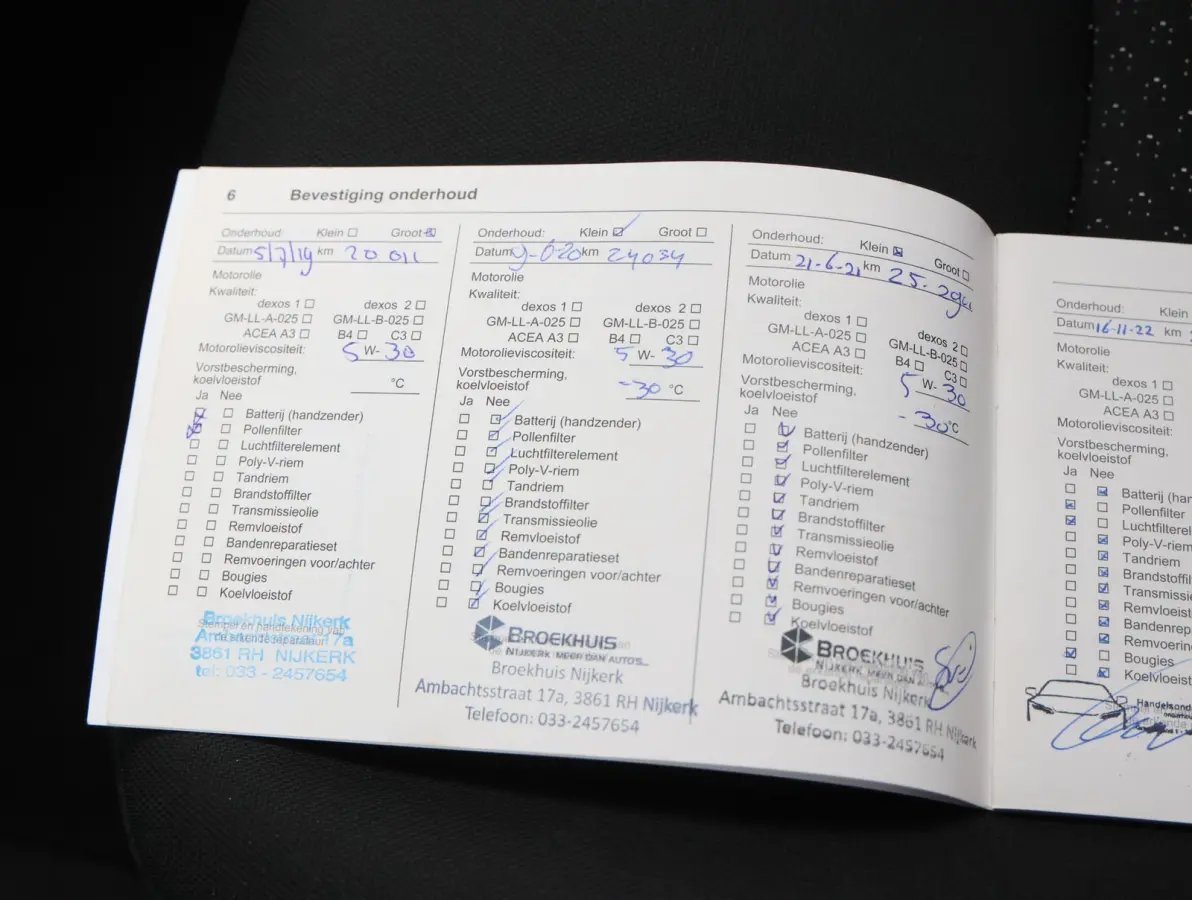 6 Bevestiging onderhoud
Onderhoud: Klein Groot
Datum 5/7/19 km 20 011
Motorolie
Kwaliteit:
dexos 1 dexos 2
GM-LL-A-025 GM-LL-B-025
ACEA A3 B4 C3
Motorolieviscositeit: 5 W- 30
Vorstbescherming,
koelvloeistof °C
Ja Nee
Batterij (handzender)
Pollenfilter
Luchtfilterelement
Poly-V-riem
Tandriem
Brandstoffilter
Transmissieolie
Remvloeistof
Bandenreparatieset
Remvoeringen voor/achter
Bougies
Koelvloeistof
Broekhuis Nijkerk
Stempel en handtekening van
7a
3861 RH NIJKERK
tel: 033 - 2457654
Onderhoud: Klein Groot
Datum 9-6-20 km 24034
Motorolie
Kwaliteit:
dexos 1 dexos 2
GM-LL-A-025 GM-LL-B-025
ACEA A3 B4 C3
Motorolieviscositeit: 5 W- 30
Vorstbescherming,
koelvloeistof -30 °C
Ja Nee
Batterij (handzender)
Pollenfilter
Luchtfilterelement
Poly-V-riem
Tandriem
Brandstoffilter
Transmissieolie
Remvloeistof
Bandenreparatieset
Remvoeringen voor/achter
Bougies
Koelvloeistof
BROEKHUIS
NIJKERK MEER DAN AUTO'S...
Broekhuis Nijkerk
Ambachtsstraat 17a, 3861 RH Nijkerk
Telefoon: 033-2457654
Onderhoud: Klein Groot
Datum 21-6-21 km
Motorolie
Kwaliteit:
dexos 1 dexos 2
GM-LL-A-025 GM-LL-B-025
ACEA A3 B4 C3
Motorolieviscositeit: 5 W- 30
Vorstbescherming,
koelvloeistof -30 °C
Ja Nee
Batterij (handzender)
Pollenfilter
Luchtfilterelement
Poly-V-riem
Tandriem
Brandstoffilter
Transmissieolie
Remvloeistof
Bandenreparatieset
Remvoeringen voor/achter
Bougies
Koelvloeistof
BROEKHUIS
NIJKERK MEER DAN
Broekhuis Nijkerk
Ambachtsstraat 17a, 3861 RH Nijkerk
Telefoon: 033-2457654
Onderhoud: Klein
Datum 16-11-22 km
Motorolie
Kwaliteit:
dexos 1
GM-LL-A-025
ACEA A3
Motorolieviscositeit:
Vorstbescherming,
koelvloeistof
Ja Nee
Batterij (har
Pollenfilter
Luchtfilterel
Poly-V-riem
Tandriem
Brandstoffil
Transmissi
Remvloeist
Bandenrep
Remvoerin
Bougies
Koelvloeist
Handelsond